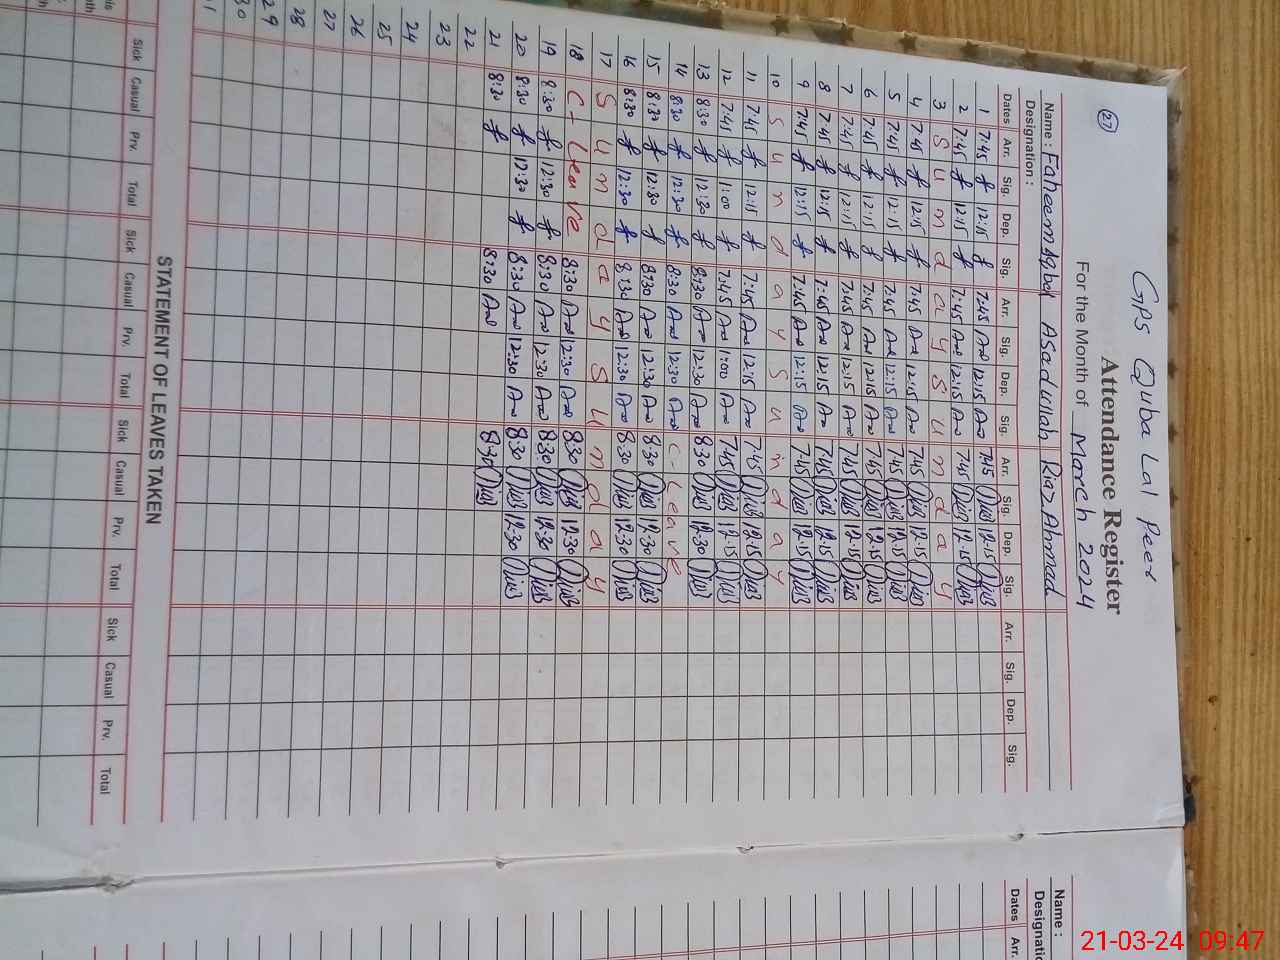 27
GPS Quba Lal Peer
Attendance Register
For the Month of March 2024
Name : Faheem Iqbal Asadullah Riaz Ahmad
Designation :
Dates Arr. Sig. Dep. Sig. Arr. Sig. Dep. Sig. Arr. Sig. Dep. Sig. Arr. Sig. Dep. Sig.
1 7:45 12:15 7:45 12:15 7:45 12:15
2 7:45 12:15 7:45 12:15 7:45 12:15
3 Sunday Sunday
4 7:45 12:15 7:45 12:15 7:45 12:15
5 7:45 12:15 7:45 12:15 7:45 12:15
6 7:45 12:15 7:45 12:15 7:45 12:15
7 7:45 12:15 7:45 12:15 7:45 12:15
8 7:45 12:15 7:45 12:15 7:45 12:15
9 7:45 12:15 7:45 12:15 7:45 12:15
10 Sunday Sunday
11 7:45 12:15 7:45 12:15 7:45 12:15
12 7:45 1:00 7:45 1:00 7:45 12:15
13 8:30 12:30 8:30 12:30 8:30 12:30
14 8:30 12:30 8:30 12:30 C-Leave
15 8:30 12:30 8:30 12:30 8:30 12:30
16 8:30 12:30 8:30 12:30 8:30 12:30
17 Sunday Sunday
18 C-Leave 8:30 12:30 8:30 12:30
19 8:30 12:30 8:30 12:30 8:30 12:30
20 8:30 12:30 8:30 12:30 8:30 12:30
21 8:30 8:30 8:30
22
23
24
25
26
27
28
29
30
STATEMENT OF LEAVES TAKEN
Sick Casual Prv. Total Sick Casual Prv. Total Sick Casual Prv. Total Sick Casual Prv. Total
Name :
Dates Arr.
21-03-24 09:47